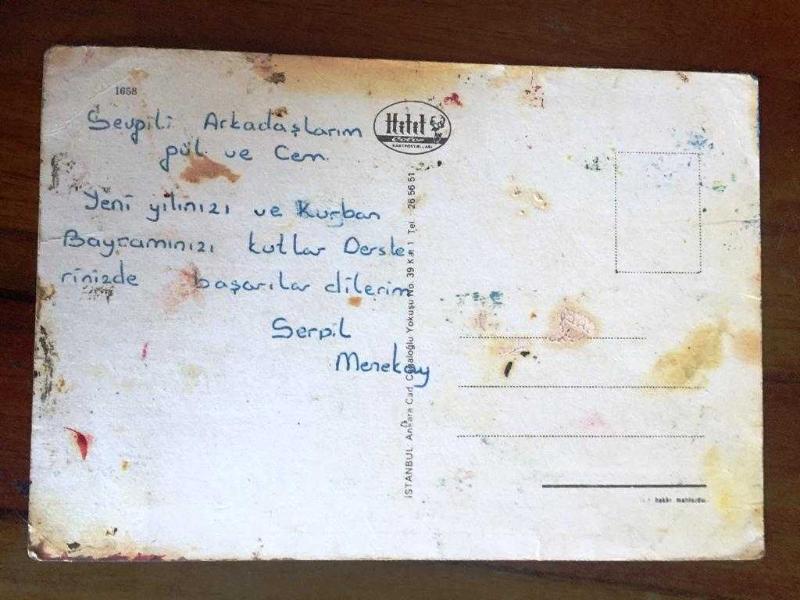 1658
Sevgili Arkadaşlarım
gül ve Cem
Yeni yılınızı ve Kurban
Bayramınızı kutlar Dersle
rinizde başarılar dilerim
Serpil
Menekay
Hitit
Color
KARTPOSTALLARI
İSTANBUL: Ankara Cad. Cağaloğlu Yokuşu No. 39 Kat 1 Tel. 26 56 51
hakkı mahfuzdur.